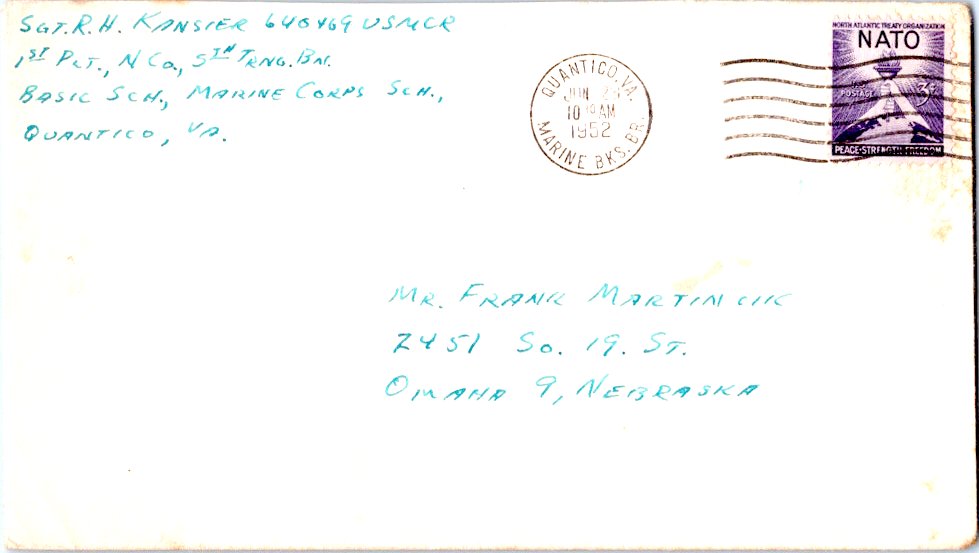 SGT. R. H. KANSIER 640469 USMCR
1ST PLT., N CO., 5TH TRNG. BN.
BASIC SCH., MARINE CORPS SCH.,
QUANTICO, VA.
QUANTICO, VA.
JUN
10 AM
1952
MARINE BKS. BR.
NORTH ATLANTIC TREATY ORGANIZATION
NATO
POSTAGE 3¢
PEACE·STRENGTH·FREEDOM
MR. FRANK
2451 SO. 19. ST.
OMAHA 9, NEBRASKA